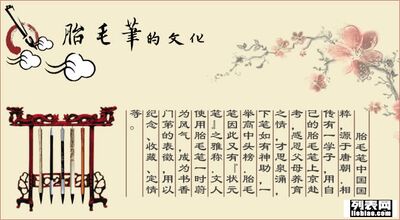 胎毛筆的文化
胎毛笔中国国
粹，源于唐朝，相
传有一学子，用自
已的胎毛笔上京赴
考，感恩父母养育
之情，才思泉涌，
下笔如有神助，一
举高中头榜，胎毛
笔因此又有『状元
笔』之雅称，文人
使用胎毛笔一时蔚
为风气，成为书香
门第的表徽，用以
纪念、收藏、定情
等。
列表网
liebiao.com